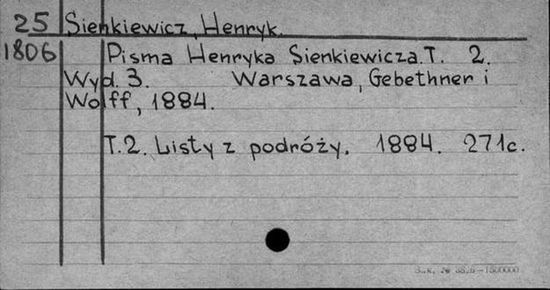 25 Sienkiewicz, Henryk.
1806 Pisma Henryka Sienkiewicza. T. 2.
Wyd. 3. Warszawa, Gebethner i
Wolff, 1884.
T. 2. Listy z podróży. 1884. 271c.